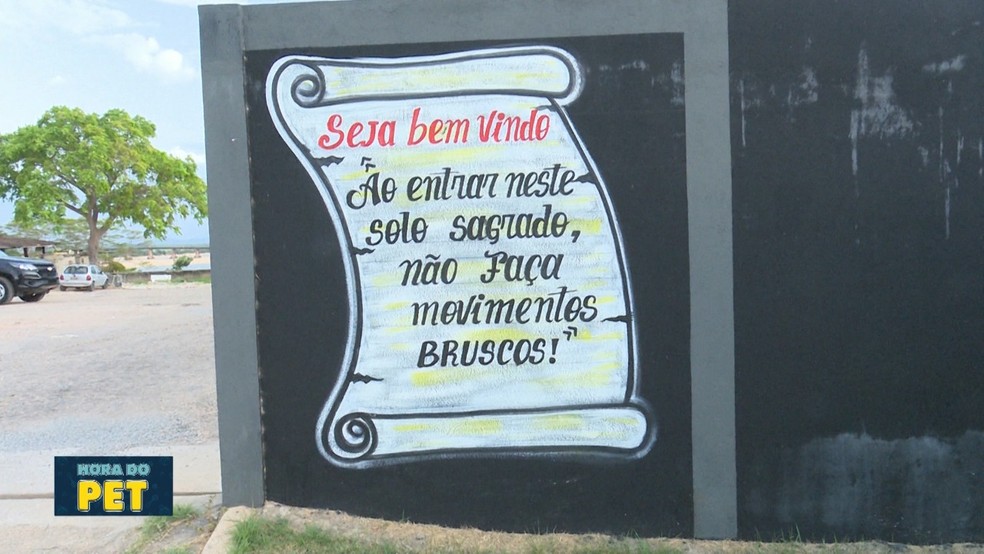 Seja bem vindo
"Ao entrar neste
solo sagrado,
não faça
movimentos
BRUSCOS!"
HORA DO
PET